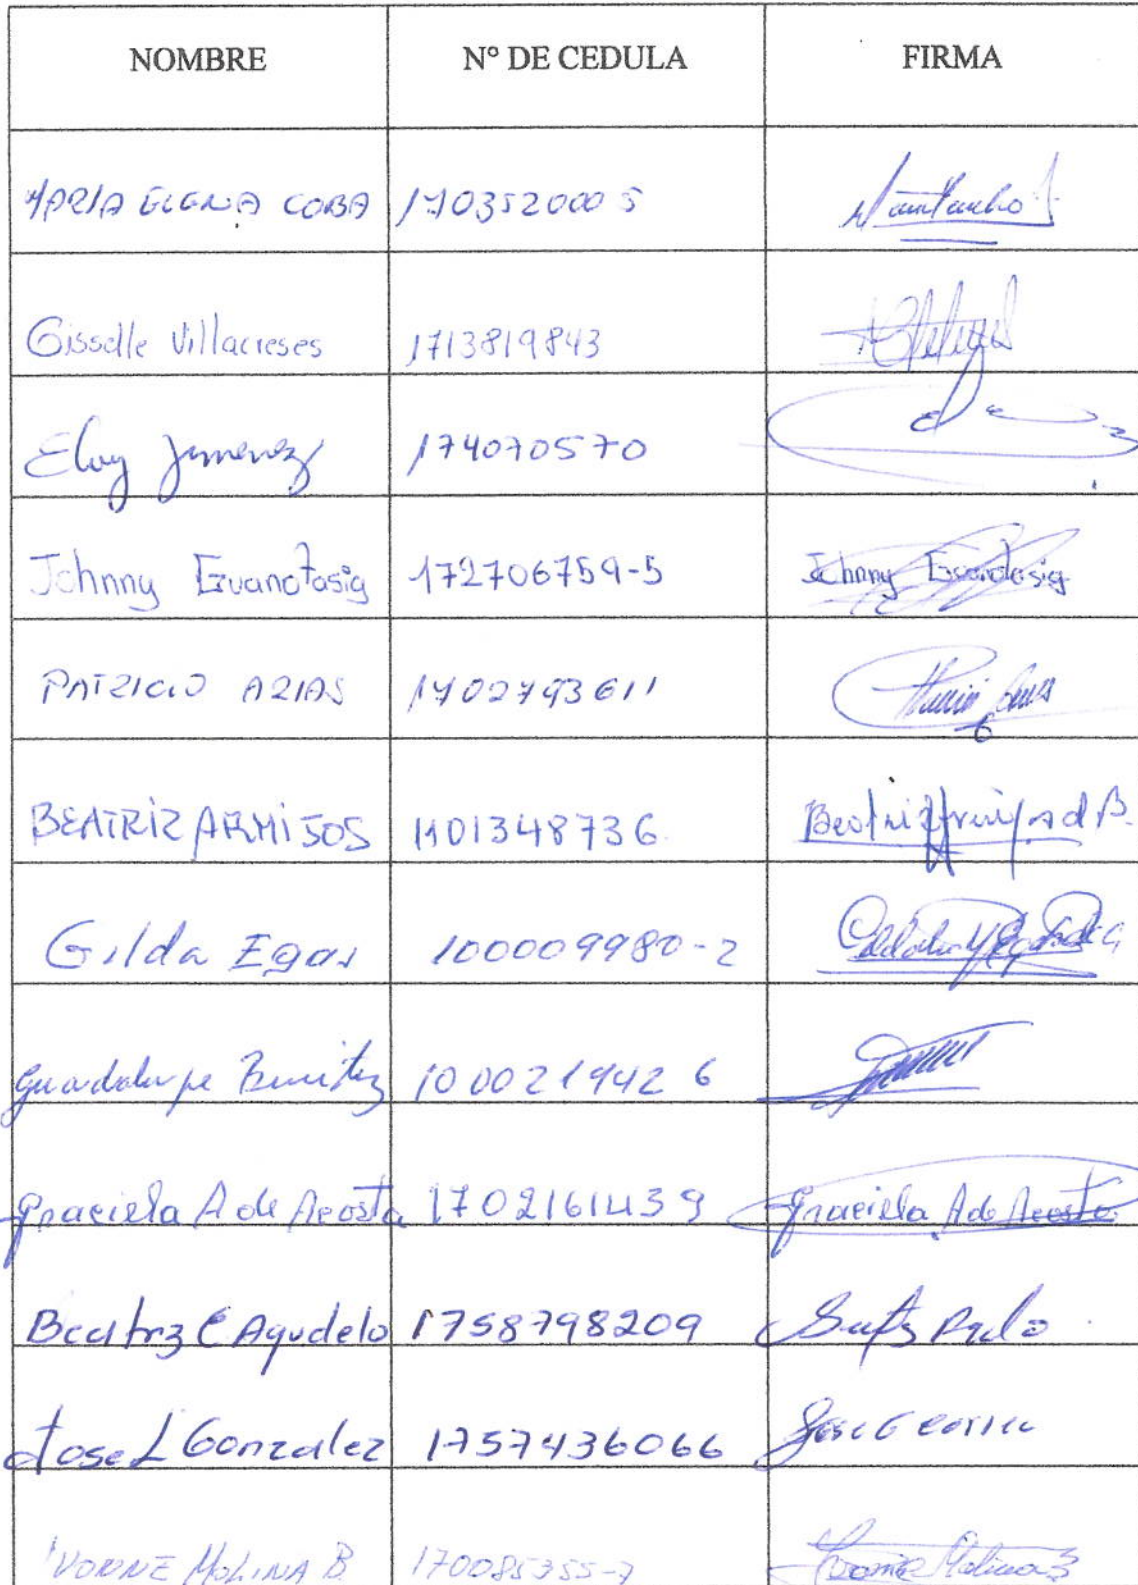 NOMBRE Nº DE CEDULA FIRMA
MARIA ELENA COBA 1703520005
Gisselle Villacreses 1713819843
Eloy Jimenez 174070570
Johnny Guanotasig 172706759-5 Johnny Guanotasig
PATRICIO ARIAS 1702793611
BEATRIZ ARMIJOS 1101348736
Gilda Egas 100009980-2
Guadalupe Benitez 1000219426
Graciela A de Acosta 1702161439 Graciela A de Acosta
Beatriz C Agudelo 1758798209
Jose L Gonzalez 1757436066
IVONNE MOLINA B. 170085355-7 Ivonne Molina B